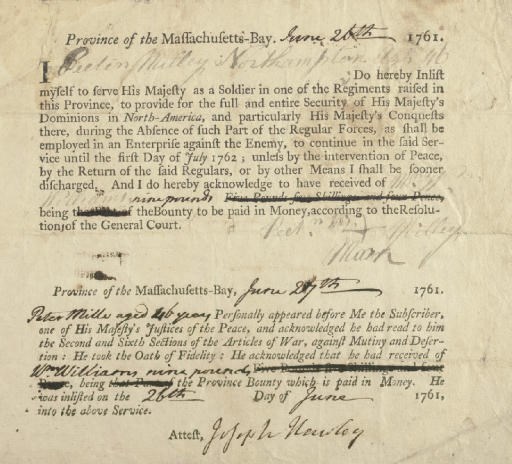 Province of the Massachusetts-Bay. June 26th 1761.
I Northampton aged 46
Do hereby Inlist
myself to serve His Majesty as a Soldier in one of the Regiments raised in
this Province, to provide for the full and entire Security of His Majesty's
Dominions in North-America, and particularly His Majesty's Conquests
there, during the Absence of such Part of the Regular Forces, as shall be
employed in an Enterprise against the Enemy, to continue in the said Ser-
vice until the first Day of July 1762; unless by the intervention of Peace,
by the Return of the said Regulars, or by other Means I shall be sooner
discharged. And I do hereby acknowledge to have received of
nine pounds Five Pounds four Shillings and four Pence,
being of the Bounty to be paid in Money, according to the Resolu-
tion of the General Court.
his
Mark
Province of the Massachusetts-Bay, June 27th 1761.
Peter Mille aged 46 years Personally appeared before Me the Subscriber,
one of His Majesty's Justices of the Peace, and acknowledged he had read to him
the Second and Sixth Sections of the Articles of War, against Mutiny and Deser-
tion: He took the Oath of Fidelity: He acknowledged that he had received of
Wm Williams nine pounds Five Pounds four Shillings and four
Pence, being that Part of the Province Bounty which is paid in Money. He
was inlisted on the 26th Day of June 1761,
into the above Service.
Attest, Joseph Hawley